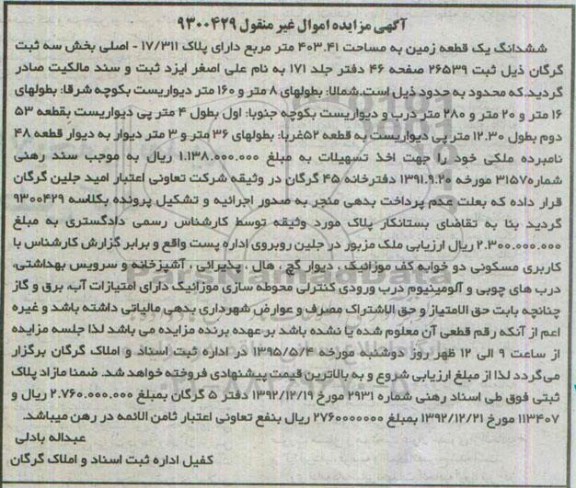 آگهی مزایده اموال غیر منقول ۹۳۰۰۴۲۹
ششدانگ یک قطعه زمین به مساحت ۴۰۳.۴۱ متر مربع دارای پلاک ۱۷/۳۱۱ - اصلی بخش سه ثبت
گرگان ذیل ثبت ۲۶۵۳۹ صفحه ۴۶ دفتر جلد ۱۷۱ به نام علی اصغر ایزد ثبت و سند مالکیت صادر
گردید.که محدود به حدود ذیل است.شمالا: بطولهای ۸ متر و ۱۶۰ متر دیواریست بکوچه شرقا: بطولهای
۱۶ متر و ۲۰ متر و ۲۸۰ متر درب و دیواریست بکوچه جنوبا: اول بطول ۴ متر پی دیواریست بقطعه ۵۳
دوم بطول ۱۲.۳۰ متر پی دیواریست به قطعه ۵۲غربا: بطولهای ۳۶ متر و ۳ متر دیوار به دیوار قطعه ۴۸
نامبرده ملکی خود را جهت اخذ تسهیلات به مبلغ ۱.۱۳۸.۰۰۰.۰۰۰ ریال به موجب سند رهنی
شماره۳۱۵۷ مورخه ۱۳۹۱.۹.۲۰ دفترخانه ۴۵ گرگان در وثیقه شرکت تعاونی اعتبار امید جلین گرگان
قرار داده که بعلت عدم پرداخت بدهی منجر به صدور اجرائیه و تشکیل پرونده بکلاسه ۹۳۰۰۴۲۹
گردید بنا به تقاضای بستانکار پلاک مورد وثیقه توسط کارشناس رسمی دادگستری به مبلغ
۲.۳۰۰.۰۰۰.۰۰۰ ریال ارزیابی ملک مزبور در جلین روبروی اداره پست واقع و برابر گزارش کارشناس با
کاربری مسکونی دو خوابه کف موزائیک ، دیوار گچ ، هال ، پذیرائی ، آشپزخانه و سرویس بهداشتی،
درب های چوبی و آلومینیوم درب ورودی کنترلی محوطه سازی موزائیک دارای امتیازات آب، برق و گاز
چنانچه بابت حق الامتیاز و حق الاشتراک مصرف و عوارض شهرداری بدهی مالیاتی داشته باشد و غیره
اعم از آنکه رقم قطعی آن معلوم شده یا نشده باشد بر عهده برنده مزایده می باشد لذا جلسه مزایده
از ساعت ۹ الی ۱۲ ظهر روز دوشنبه مورخه ۱۳۹۵/۵/۴ در اداره ثبت اسناد و املاک گرگان برگزار
می گردد لذا از مبلغ ارزیابی شروع و به بالاترین قیمت پیشنهادی فروخته خواهد شد. ضمنا مازاد پلاک
ثبتی فوق طی اسناد رهنی شماره ۲۹۳۱ مورخ ۱۳۹۲/۱۲/۱۹ دفتر ۵ گرگان بمبلغ ۲.۷۶۰.۰۰۰.۰۰۰ ریال و
۱۱۳۴۰۷ مورخ ۱۳۹۲/۱۲/۲۱ بمبلغ ۲۷۶۰۰۰۰۰۰۰ ریال بنفع تعاونی اعتبار ثامن الائمه در رهن میباشد.
عبداله بادلی
کفیل اداره ثبت اسناد و املاک گرگان